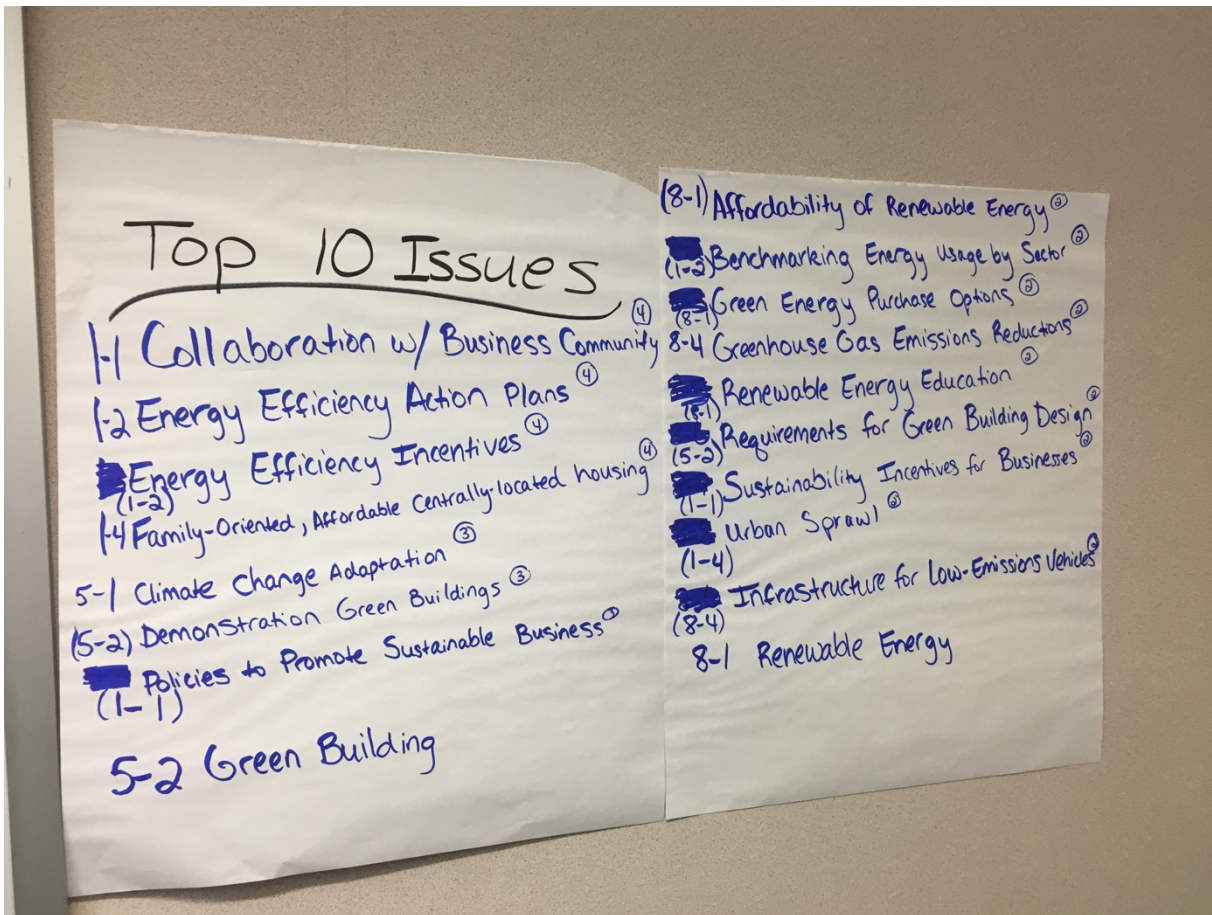 Top 10 Issues
1-1 Collaboration w/ Business Community ④
1-2 Energy Efficiency Action Plans ④
Energy Efficiency Incentives ④
(1-2)
1-4 Family-Oriented, Affordable Centrally-located housing ④
5-1 Climate Change Adaptation ③
(5-2) Demonstration Green Buildings ③
Policies to Promote Sustainable Business
(1-1)
5-2 Green Building
(8-1) Affordability of Renewable Energy ②
Benchmarking Energy Usage by Sector ②
(1-2)
Green Energy Purchase Options ②
(8-1)
8-4 Greenhouse Gas Emissions Reductions ②
Renewable Energy Education ②
(8-1)
Requirements for Green Building Design ②
(5-2)
Sustainability Incentives for Businesses ②
(1-1)
Urban Sprawl ②
(1-4)
Infrastructure for Low-Emissions Vehicles ②
(8-4)
8-1 Renewable Energy